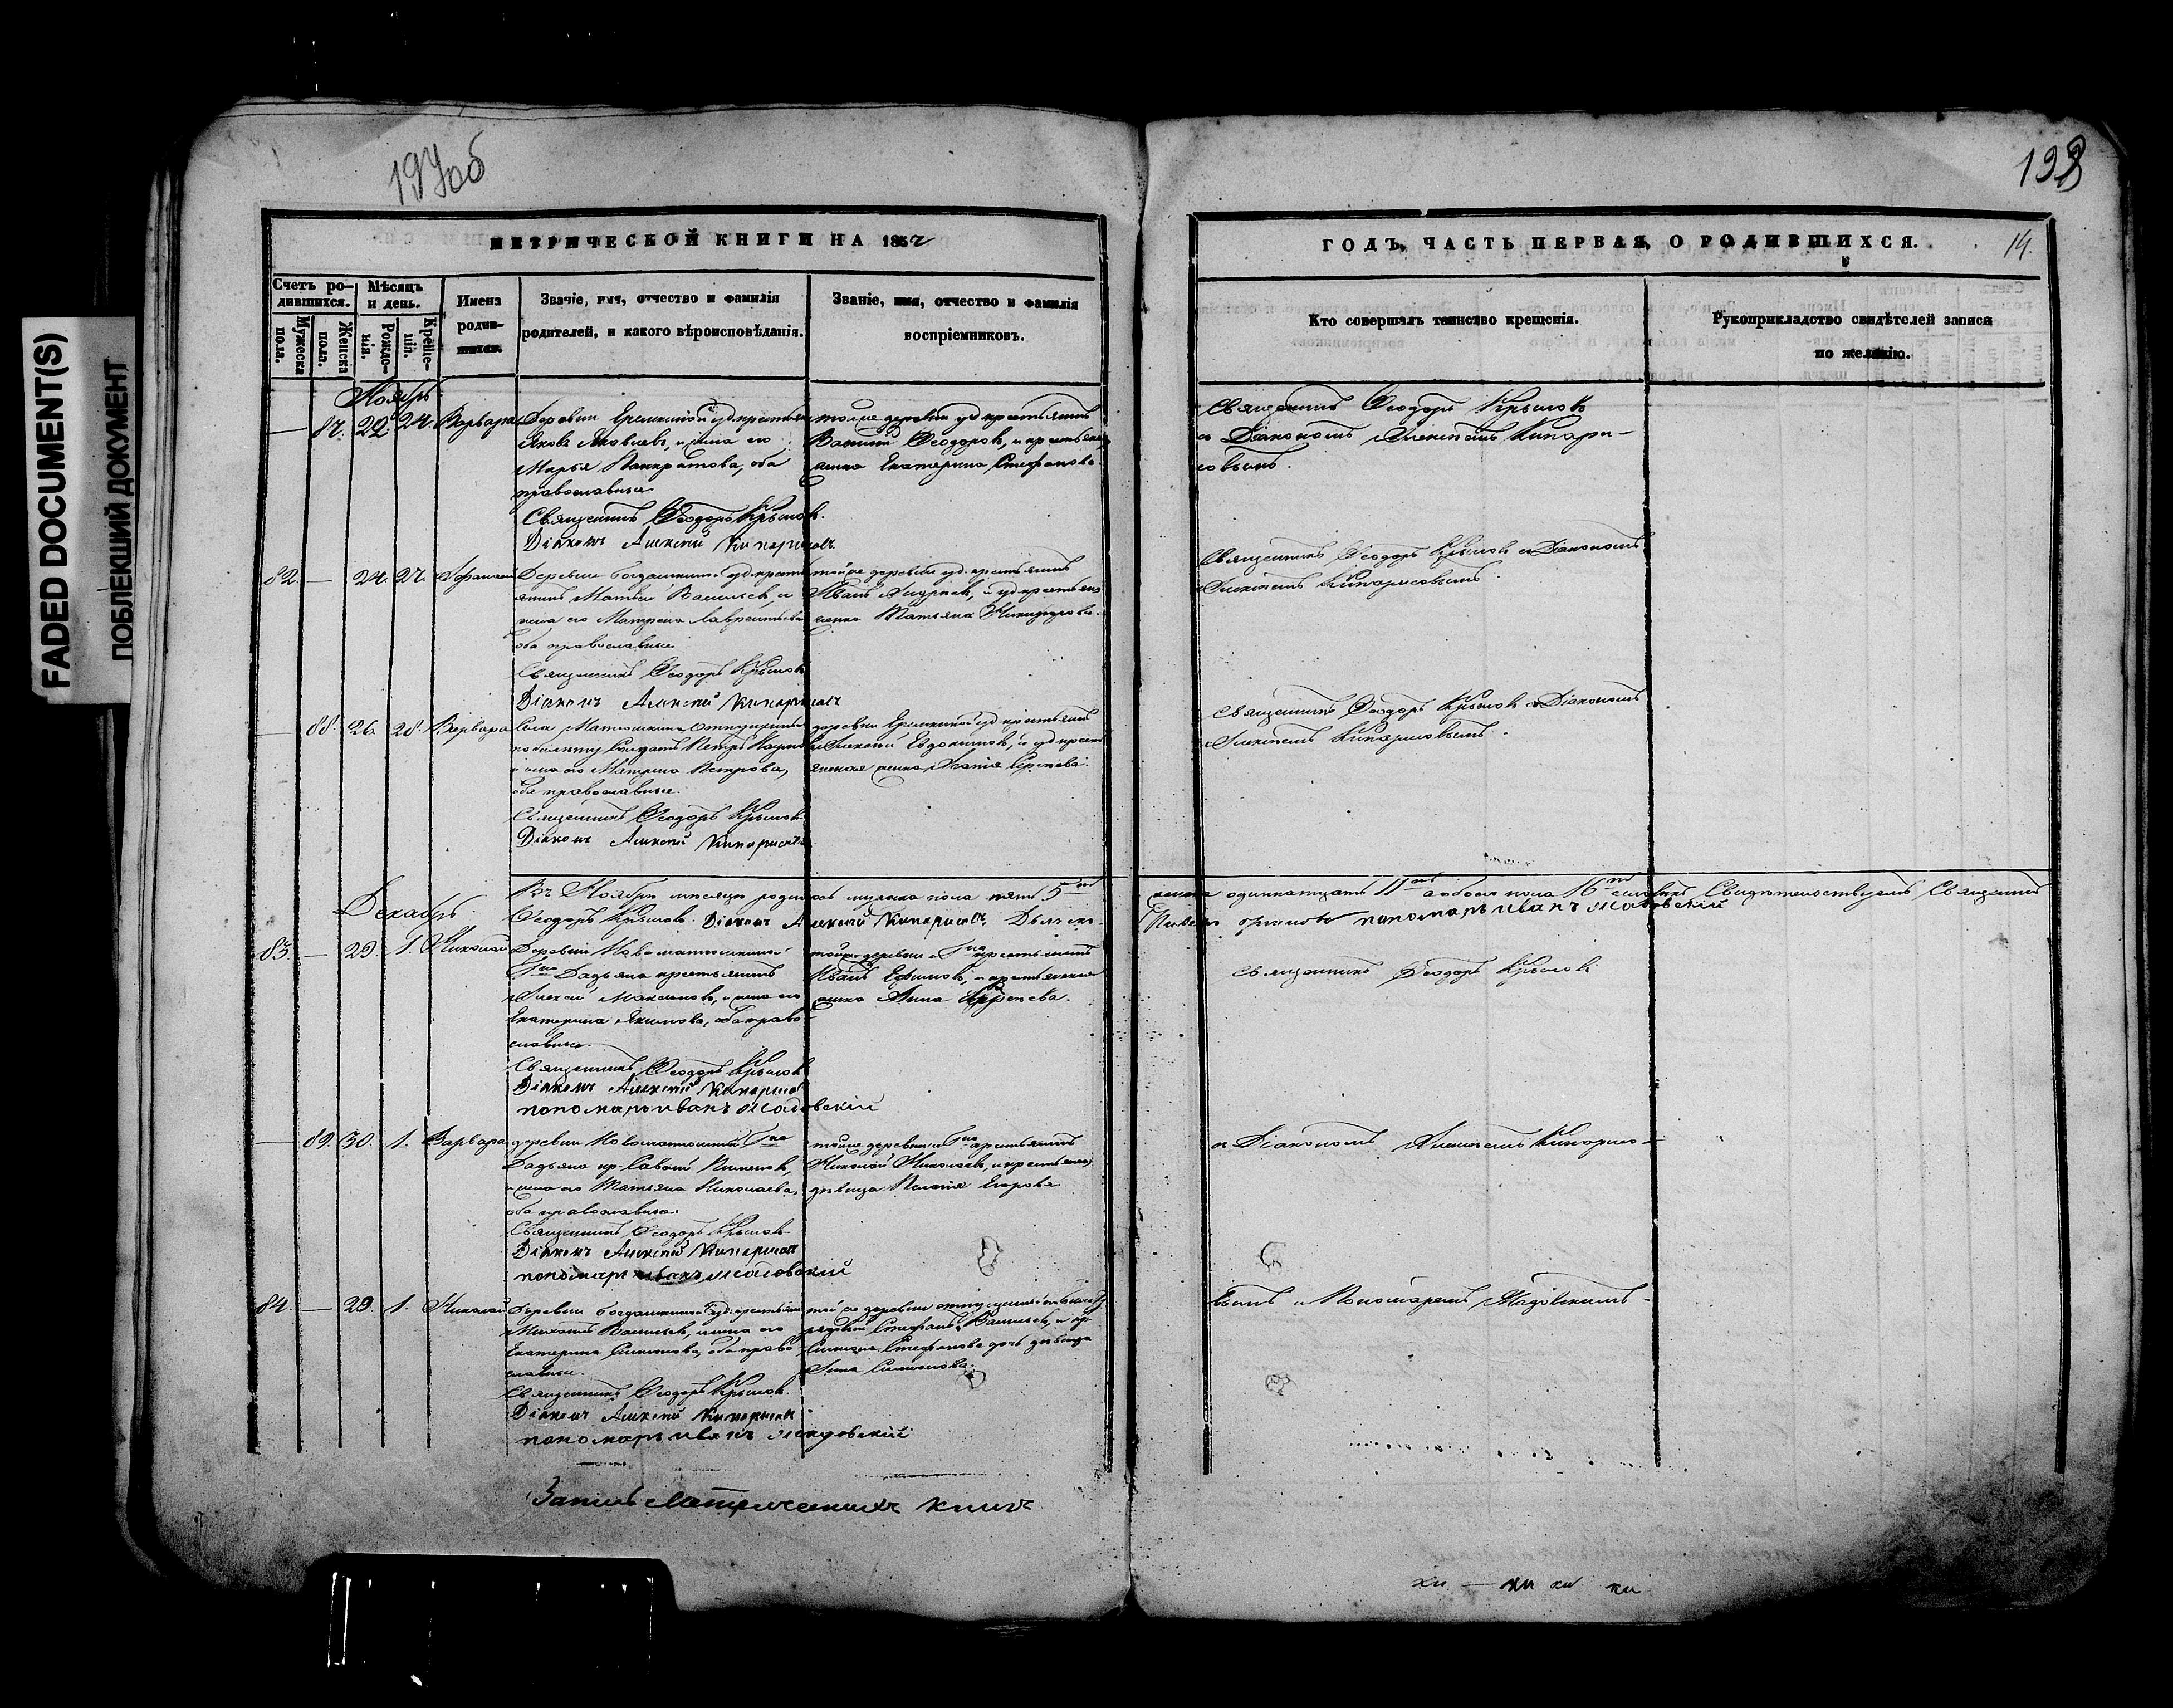 FADED DOCUMENT(S)
ПОБЛЕКШИЙ ДОКУМЕНТ
197об
198
МЕТРИЧЕСКОЙ КНИГИ НА 1852
Счетъ ро-
дившихся.
Мужеска
пола.
Женска
пола.
Мѣсяцъ
и день.
Рожде-
нія.
Креще-
ній.
Имена
родив-
шихся.
Званіе, имя, отчество и фамилія
родителей, и какого вѣроисповѣданія.
Званіе, имя, отчество и фамилія
воспріемниковъ.
Ноябрь
— 87. 22 24. Варвара
Деревни Еремкиной уд. крестьян
Яковъ Яковлевъ, и жена его
Марья Панкратова, оба
православные
Священникъ Ѳеодоръ Крыловъ.
Діаконъ Алексѣй Кипарисовъ
тойже деревни уд. крестьянинъ
Василій Ѳеодоровъ, и крестьянс
женка Екатерина Стефанова.
82. — 24. 27.
Деревни Богдашкиной уд. кресть
янинъ Матвѣй Васильевъ, и
жена его Матрена Лаврентьева
оба православные
Священникъ Ѳеодоръ Крыловъ
Діаконъ Алексѣй Кипарисовъ
тойже деревни уд. крестьянинъ
Иванъ Андреевъ, и уд. крестьянс
женка Татьяна Никифорова.
— 88. 26. 28. Варвара
Села Матюшкина отпущенный
по билету Солдатъ Петръ
и жена его Матрена Петрова,
оба православные.
Священникъ Ѳеодоръ Крыловъ.
Діаконъ Алексѣй Кипарисовъ
деревни Еремкиной уд. крестьянинъ
Алексѣй Евдокимовъ, и уд. крест
янская женка Агапія Сергѣева.
Декабрь.
Въ Ноябрѣ мѣсяцѣ родилось мужеска пола пять 5ть
Ѳеодоръ Крыловъ. Діаконъ Алексѣй Кипарисовъ.
83. — 29. 1. Николай
Деревни Новоматюшкиной
Г-на Дадьяна крестьянинъ
Алексѣй Максимовъ, и жена его
Екатерина Якимова, оба право
славные.
Священникъ Ѳеодоръ Крыловъ
Діаконъ Алексѣй Кипарисовъ
пономарь иванъ Мадовскій
тойже деревни и Г-на крестьянинъ
Иванъ Ефимовъ, и крестьянская
женка Анна Сергѣева.
— 89. 30. 1. Варвара
деревни Новоматюшкиной Г-на
Дадьяна кр. Савватій Пименовъ,
и жена его Татьяна Николаева,
оба православные.
Священникъ Ѳеодоръ Крыловъ
Діаконъ Алексѣй Кипарисовъ
пономарь иванъ Мадовскій
тойже деревни и Г-на крестьянинъ
Николай Николаевъ, и крестьянс
дѣвица Пелагія Егорова
84. — 29. 1. Николай
Деревни Богдашкиной уд. крестьян
Михаилъ Васильевъ, и жена его
Екатерина Симонова, оба право
славные.
Священникъ Ѳеодоръ Крыловъ.
Діаконъ Алексѣй Кипарисовъ
пономарь иванъ Мадовскій
той же деревни отпущенный по билету
рядовой Стефанъ Васильевъ, и кр.
Симеона Стефанова дочь дѣвица
Анна Симеонова.
Запись Метрическихъ книгъ
ГОДЪ, ЧАСТЬ ПЕРВАЯ, О РОДИВШИХСЯ. 14.
Кто совершалъ таинство крещенія.
Рукоприкладство свидѣтелей записи
по желанію.
Священникъ Ѳеодоръ Крыловъ
съ Діакономъ Алексѣемъ Кипари-
совымъ.
Священникъ Ѳеодоръ Крыловъ съ Діакономъ
Алексѣемъ Кипарисовымъ.
Священникъ Ѳеодоръ Крыловъ съ Діакономъ
Алексѣемъ Кипарисовымъ.
женска одиннатцать 11ть а обоего пола 16ть Свидѣтельствуемъ Священникъ
пономарь иванъ Мадовскій
Священникъ Ѳеодоръ Крыловъ
съ Діакономъ Алексѣемъ Кипарисо-
вымъ и Пономаремъ Мадовскимъ